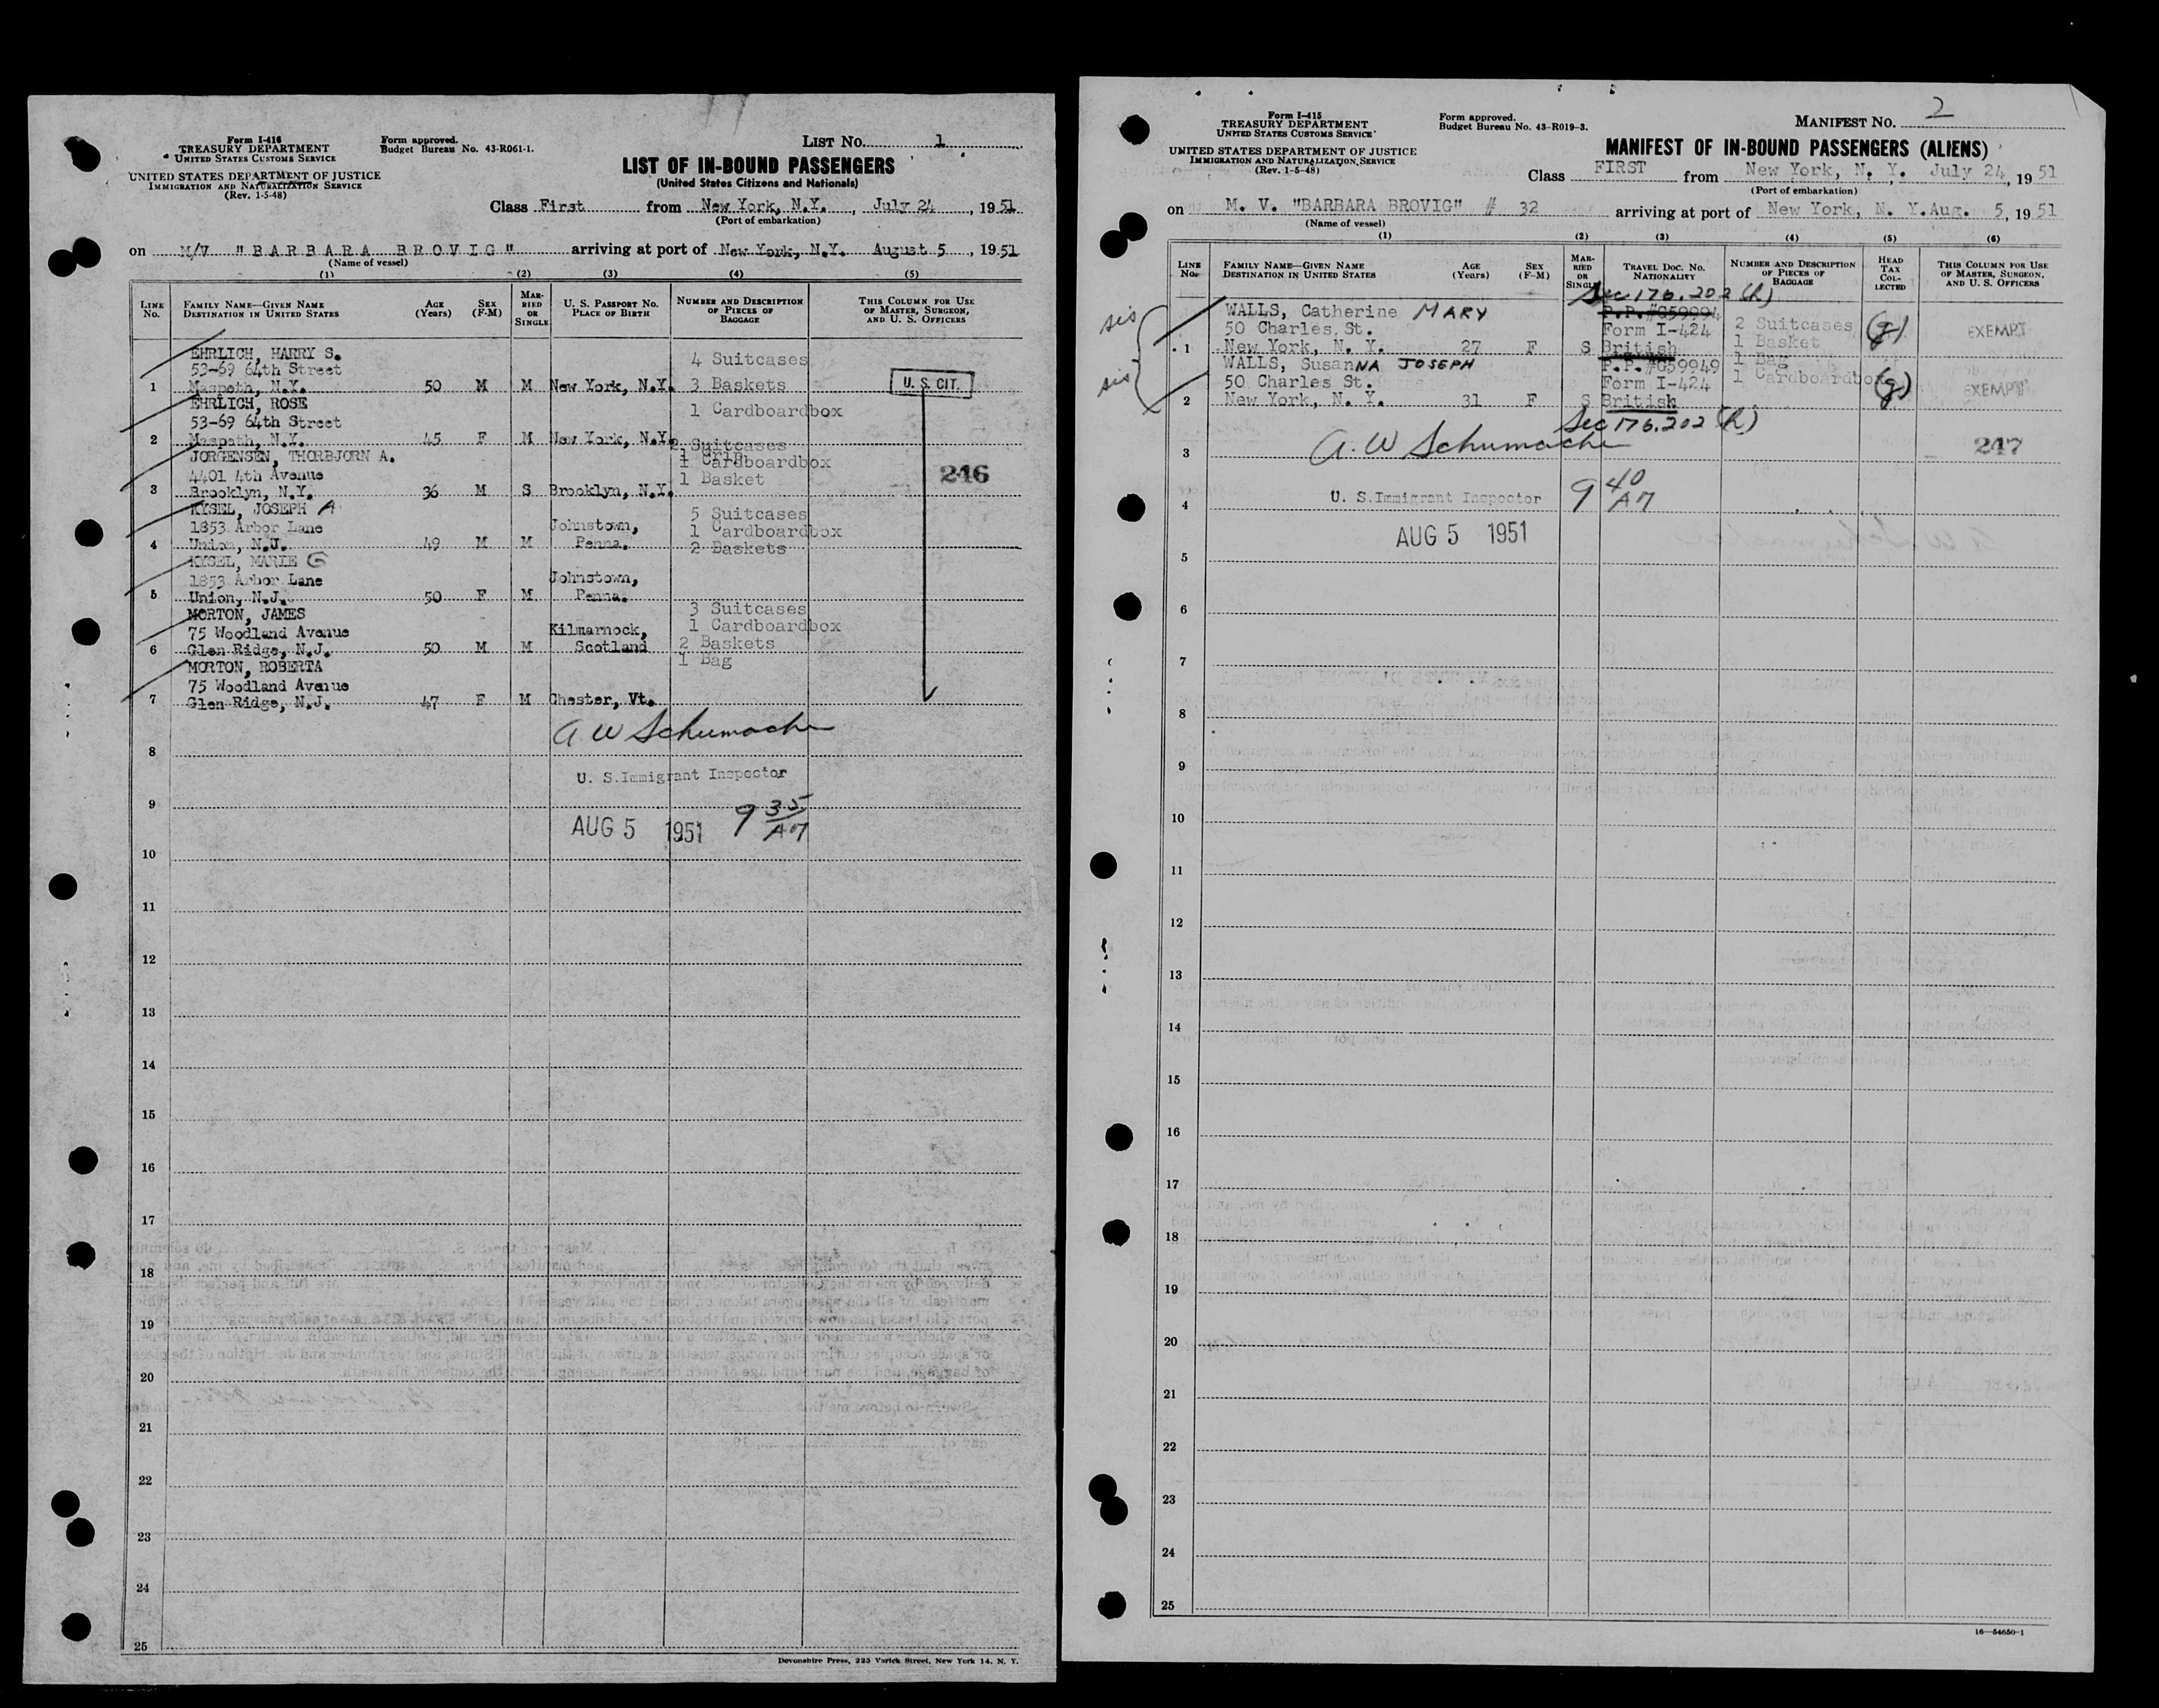 Form I-416
TREASURY DEPARTMENT
UNITED STATES CUSTOMS SERVICE
UNITED STATES DEPARTMENT OF JUSTICE
IMMIGRATION AND NATURALIZATION SERVICE
(Rev. 1-5-48)
Form approved.
Budget Bureau No. 43-R061-1.
LIST NO. 1
LIST OF IN-BOUND PASSENGERS
(United States Citizens and Nationals)
Class First from New York, N.Y., July 24, 1951
(Port of embarkation)
on M/V "BARBARA BROVIG" arriving at port of New York, N.Y. August 5, 1951
(Name of vessel)
(1) (2) (3) (4) (5)
LINE NO.
FAMILY NAME—GIVEN NAME DESTINATION IN UNITED STATES
AGE (Years)
SEX (F-M)
MARRIED OR SINGLE
U. S. PASSPORT NO. PLACE OF BIRTH
NUMBER AND DESCRIPTION OF PIECES OF BAGGAGE
THIS COLUMN FOR USE OF MASTER, SURGEON, AND U. S. OFFICERS
EHRLICH, HARRY S.
53-69 64th Street 4 Suitcases
1 Maspeth, N.Y. 50 M M New York, N.Y. 3 Baskets U. S. CIT.
EHRLICH, ROSE 1 Cardboardbox
53-69 64th Street
2 Maspeth, N.Y. 45 F M New York, N.Y. 2 Suitcases
JORGENSEN, THORBJORN A. 1 Grip
4401 4th Avenue 1 Cardboardbox
3 Brooklyn, N.Y. 36 M S Brooklyn, N.Y. 1 Basket 246
KYSEL, JOSEPH A 5 Suitcases
1853 Arbor Lane Johnstown, 1 Cardboardbox
4 Union, N.J. 49 M M Penna. 2 Baskets
KYSEL, MARIE G
1853 Arbor Lane Johnstown,
5 Union, N.J. 50 F M Penna.
MORTON, JAMES 3 Suitcases
75 Woodland Avenue Kilmarnock, 1 Cardboardbox
6 Glen Ridge, N.J. 50 M M Scotland 2 Baskets
MORTON, ROBERTA 1 Bag
75 Woodland Avenue
7 Glen Ridge, N.J. 47 F M Chester, Vt.
A W Schumacher
8
U. S. Immigrant Inspector
9
AUG 5 1951 9 35 AM
10
11
12
13
14
15
16
17
18
19
20
21
22
23
24
25
Devonshire Press, 225 Varick Street, New York 14, N. Y.
Form I-415
TREASURY DEPARTMENT
UNITED STATES CUSTOMS SERVICE
UNITED STATES DEPARTMENT OF JUSTICE
IMMIGRATION AND NATURALIZATION SERVICE
(Rev. 1-5-48)
Form approved.
Budget Bureau No. 43-R019-3.
MANIFEST NO. 2
MANIFEST OF IN-BOUND PASSENGERS (ALIENS)
Class FIRST from New York, N. Y., July 24, 1951
(Port of embarkation)
on M. V. "BARBARA BROVIG" # 32 arriving at port of New York, N. Y. Aug. 5, 1951
(Name of vessel)
(1) (2) (3) (4) (5) (6)
LINE NO.
FAMILY NAME—GIVEN NAME DESTINATION IN UNITED STATES
AGE (Years)
SEX (F-M)
MARRIED OR SINGLE
TRAVEL DOC. NO. NATIONALITY
NUMBER AND DESCRIPTION OF PIECES OF BAGGAGE
HEAD TAX COLLECTED
THIS COLUMN FOR USE OF MASTER, SURGEON, AND U. S. OFFICERS
Sec 176.202 (h)
sis WALLS, Catherine MARY P.P.#G59994
50 Charles St. Form I-424 2 Suitcases (g) EXEMPT
1 New York, N. Y. 27 F S British 1 Basket
sis WALLS, SusanNA JOSEPH P.P.#G59949 1 Bag
50 Charles St. Form I-424 1 Cardboardbox (g) EXEMPT
2 New York, N. Y. 31 F S British
Sec 176.202 (h)
3 A. W Schumacher 247
4 U. S. Immigrant Inspector 9 40 AM
AUG 5 1951
5
6
7
8
9
10
11
12
13
14
15
16
17
18
19
20
21
22
23
24
25
16—54650-1